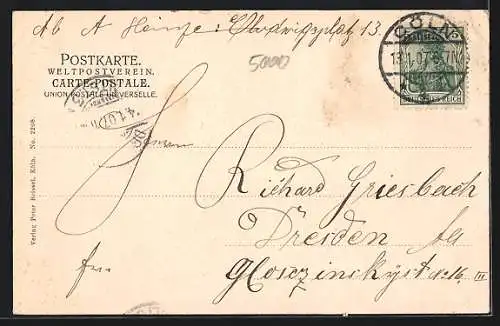 Ab A Heinze: Ludwigsplatz 13.
5000
POSTKARTE.
WELTPOSTVEREIN.
CARTE POSTALE.
UNION POSTALE UNIVERSELLE.
CÖLN
13.1.07
DEUTSCHES REICH
4.1.07
Herrn
Richard Griesbach
Dresden
Gloczinskyst No 16. III
Verlag Peter Brüssel, Köln. No. 2288.